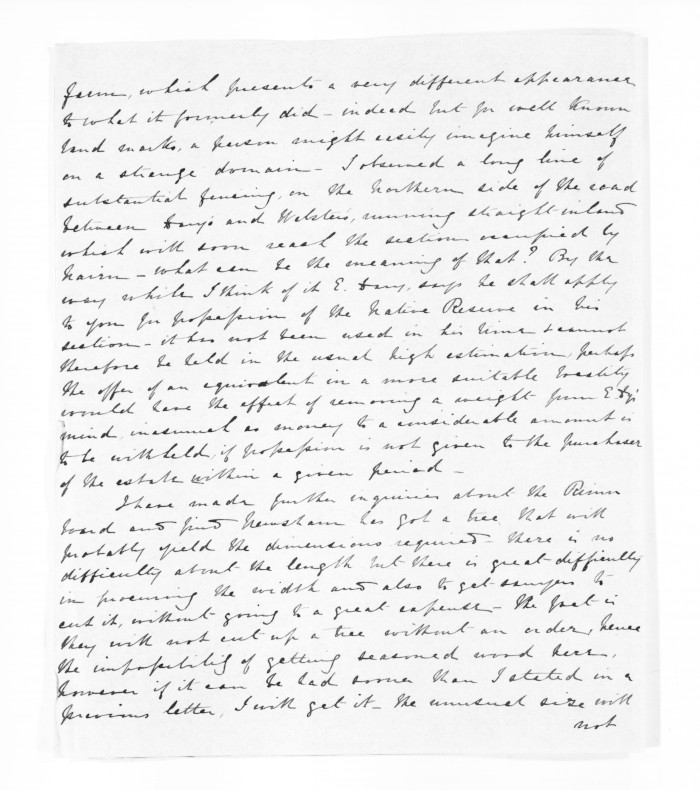 farm, which presents a very different appearance
to what it formerly did - indeed but for well known
land marks, a person might easily imagine himself
on a strange domain - I observed a long line of
substantial fencing, on the Northern side of the road
between Days and Websters, running straight inland
which will soon reach the section occupied by
Nairn - what can be the meaning of that? By the
way while I think of it E. Day, says he shall apply
to you for possession of the Native Reserve in his
section - it has not been used in his time & cannot
therefore be held in the usual high estimation, perhaps
the offer of an equivalent in a more suitable locality
would have the effect of removing a weight from E Dy's
mind, inasmuch as money to a considerable amount is
to be withheld, if possession is not given to the purchaser
of the estate within a given period -
I have made further inquiries about the Rimu
board and find Newsham has got a tree that will
probably yield the dimensions required - there is no
difficulty about the length but there is great difficulty
in procuring the width and also to get sawyers to
cut it, without going to a great expense - The fact is
they will not cut up a tree without an order, hence
the impossibility of getting seasoned wood here,
however if it can be had sooner than I stated in a
previous letter, I will get it - the unusual size will
not